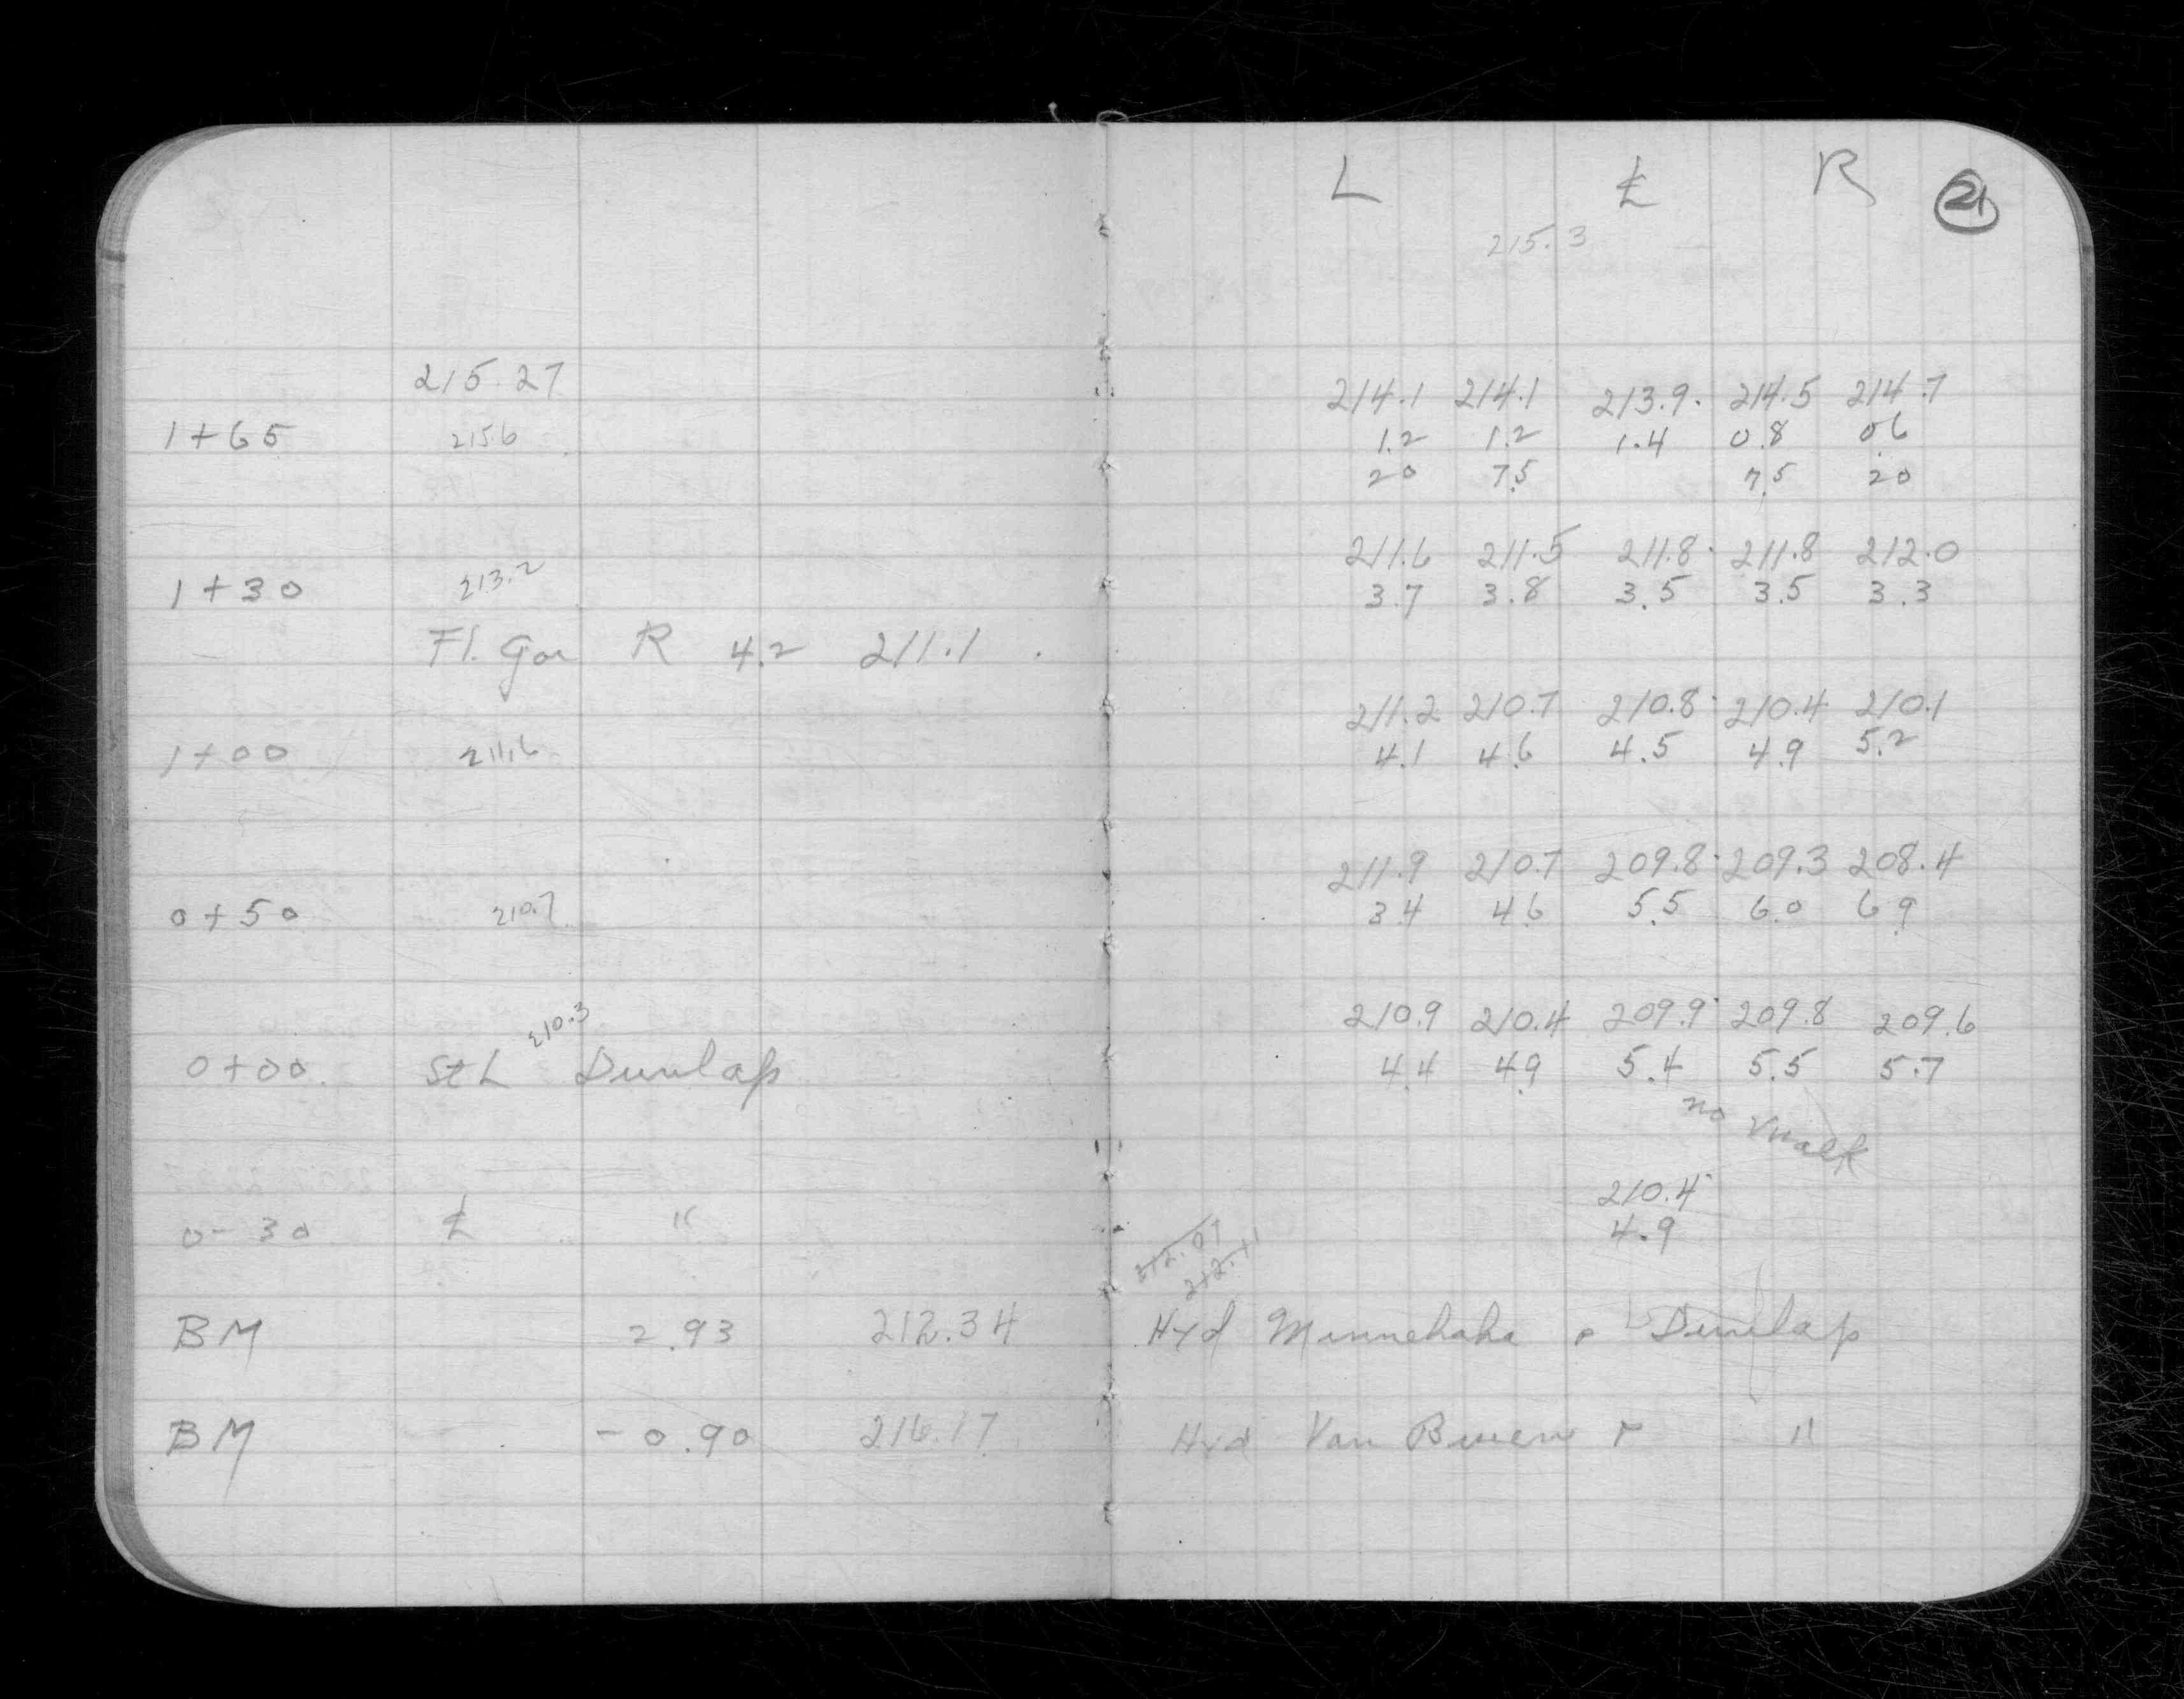 L ℄ R 21
215.3
215.27
214.1 214.1 213.9 214.5 214.7
1+65 215.6 1.2 1.2 1.4 0.8 06
20 7.5 7.5 20
211.6 211.5 211.8 211.8 212.0
1+30 213.2 3.7 3.8 3.5 3.5 3.3
Fl. Gar R 4.2 211.1
211.2 210.7 210.8 210.4 210.1
1+00 211.6 4.1 4.6 4.5 4.9 5.2
211.9 210.7 209.8 209.3 208.4
0+50 210.7 3.4 4.6 5.5 6.0 6.9
210.3 210.9 210.4 209.9 209.8 209.6
0+00 St L Dunlap 4.4 4.9 5.4 5.5 5.7
no Walk
210.4
0-30 ℄ " 4.9
212.07
212.11
BM 2.93 212.34 Hyd Minnehaha & Dunlap
BM -0.90 216.17 Hyd Van Buren & "